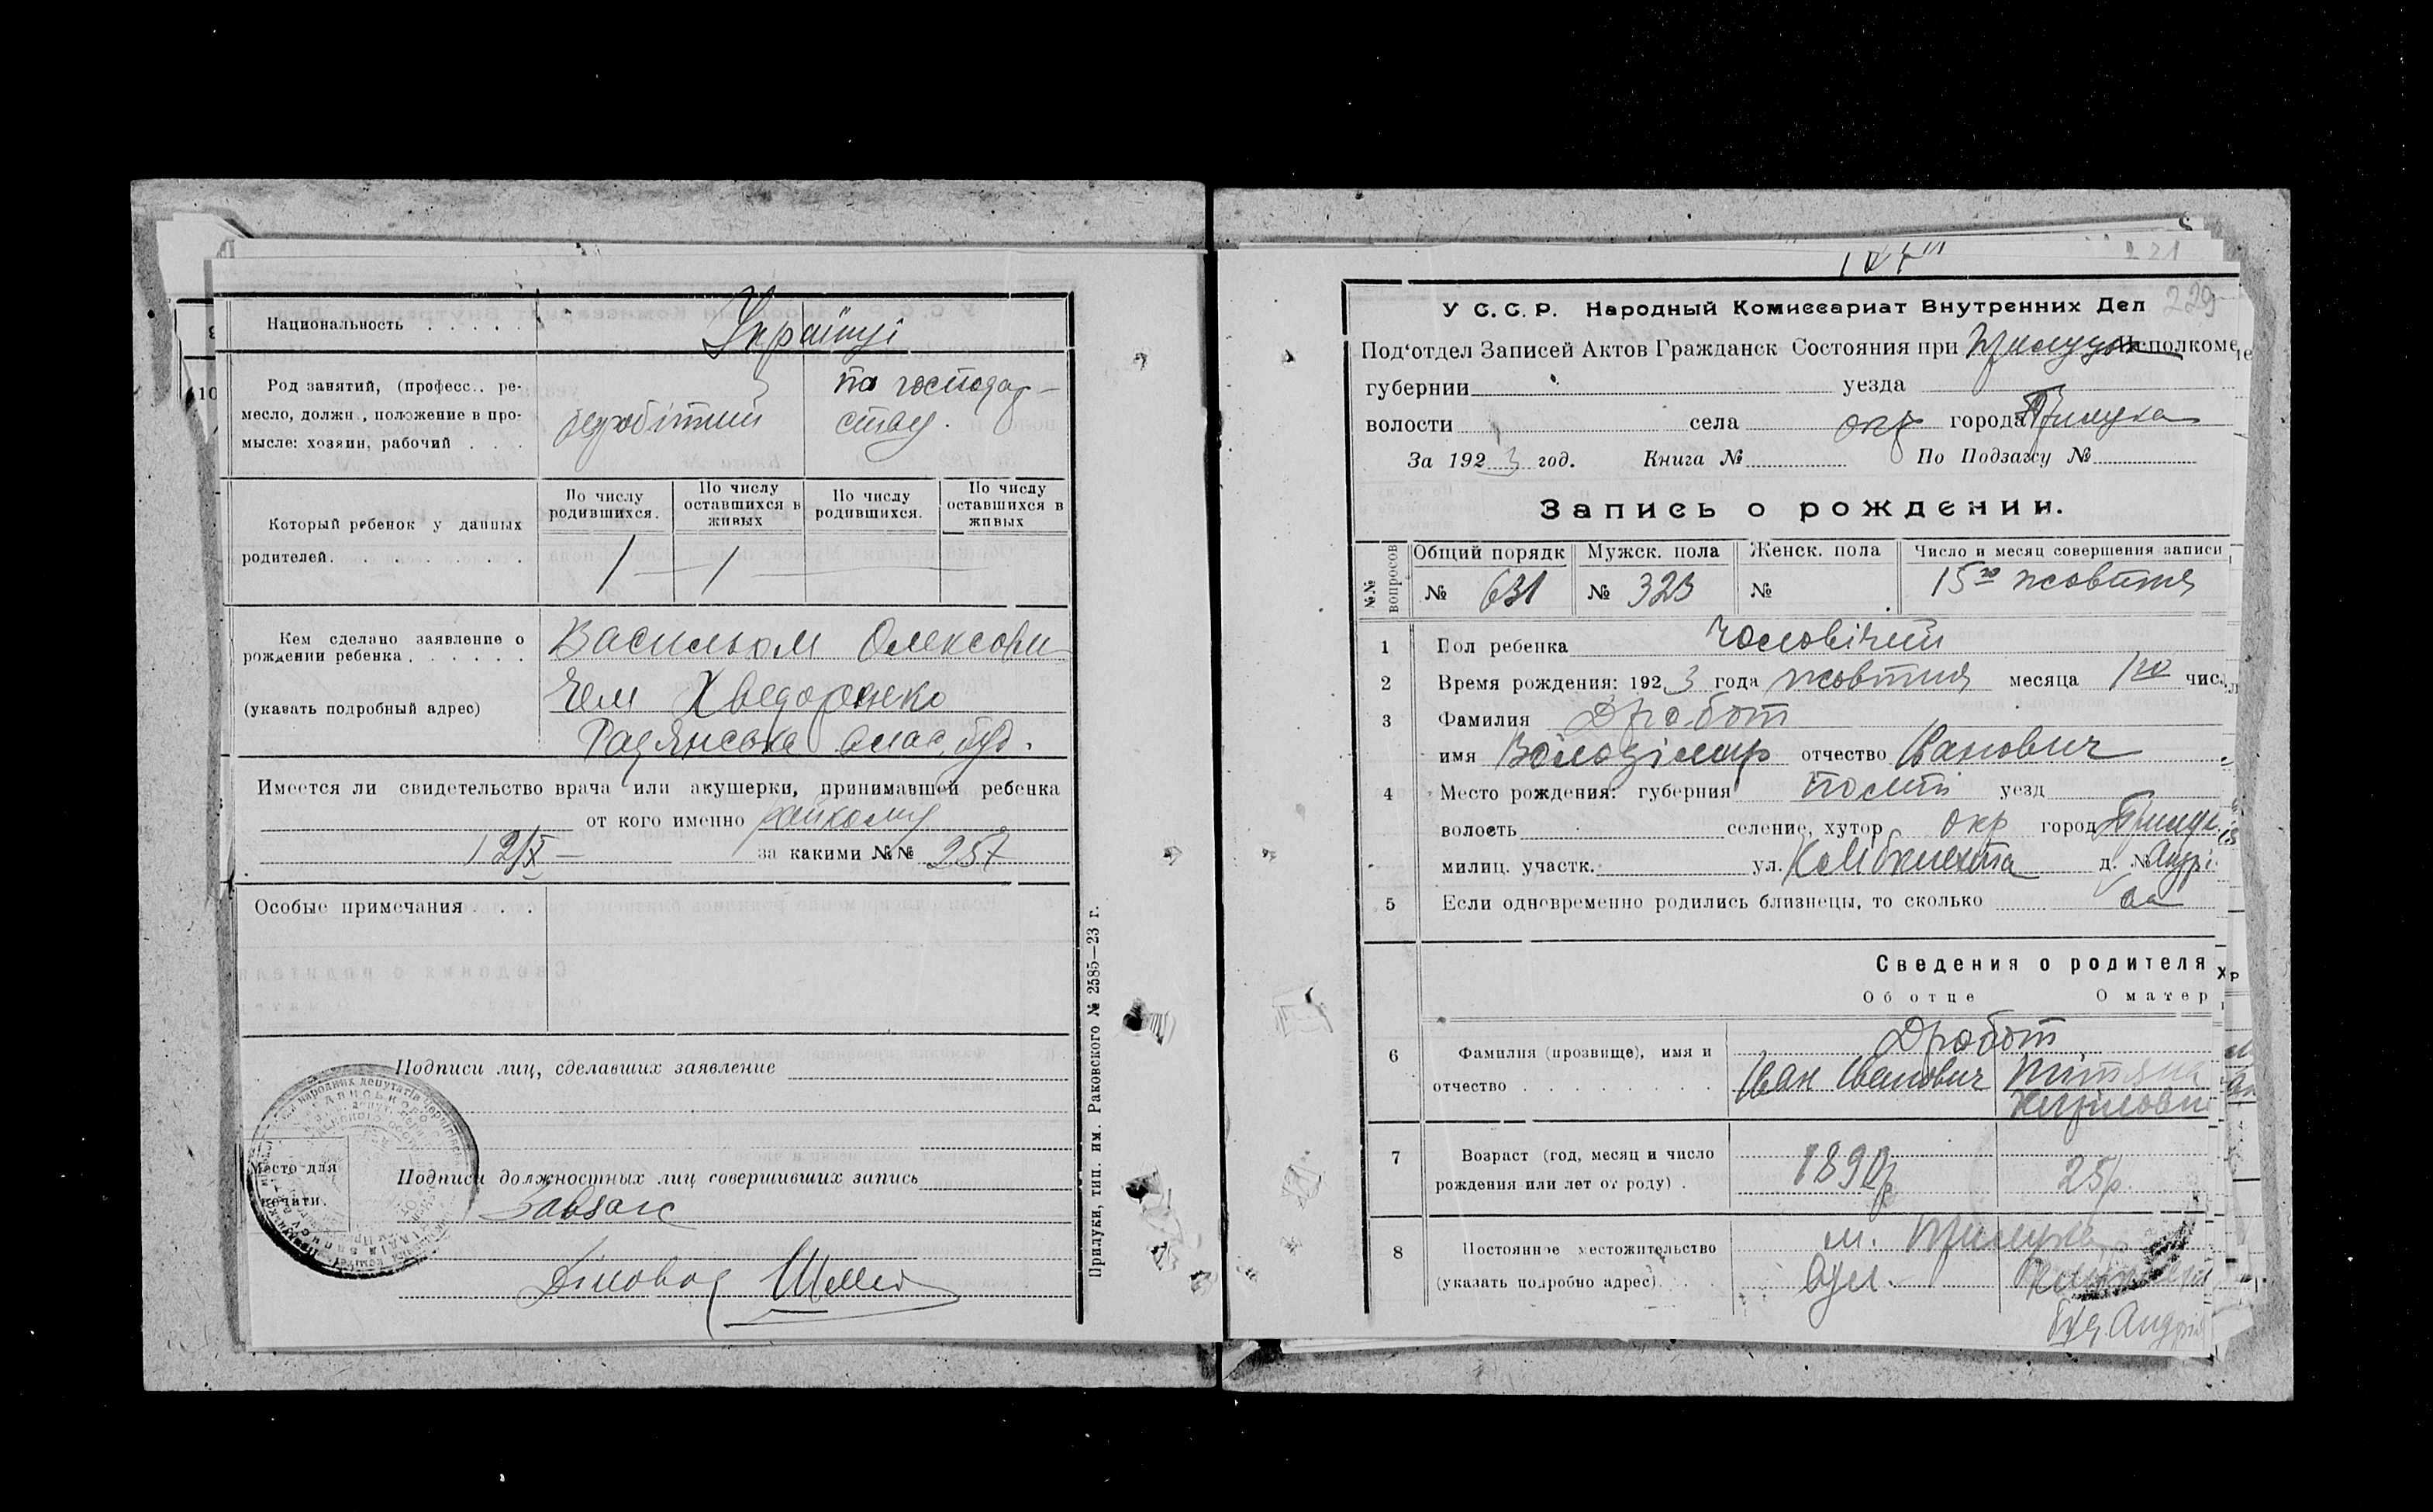 Национальность . . . . .
Українці
Род занятий, (професс.. ре-
месло, должн., положение в про-
мысле: хозяин, рабочий . . .
безробітний
по господар-
ству.
Который ребенок у данных
родителей. . . . . . .
По числу
родившихся.
По числу
оставшихся в
живых
По числу
родившихся.
По числу
оставшихся в
живых
1 — 1 —
Кем сделано заявление о
рождении ребенка . . . . . .
(указать подробный адрес)
Васильом Олексови-
чем Хведоренко
Радянська влас. буд.
Имеется ли свидетельство врача или акушерки, принимавшей ребенка
от кого именно
12/X — за какими №№ 257
Особые примечания . . .
Подписи лиц, сделавших заявление
Место для
печати.
Подписи должностных лиц совершивших запись
Завзагс
Діловод
Прилуки, тип. им. Раковского № 2585—23 г.
221
229
У С. С. Р. Народный Комиссариат Внутренних Дел
Под'отдел Записей Актов Гражданск Состояния при Прилуцьк Исполкоме
губернии уезда
волости села окр города Прилука
За 1923 год. Книга № По Подзагсу №
Запись о рождении.
№№ вопросов
Общий порядк
№ 631
Мужск. пола
№ 323
Женск. пола
№
Число и месяц совершения записи
15го жовтня
1 Пол ребенка чоловічий
2 Время рождения: 1923 года жовтня месяца 1го числ
3 Фамилия Дробот
имя Володімир отчество Іванович
4 Место рождения: губерния Полт уезд
волость селение, хутор окр город Прилук
милиц. участк. ул. д. № Андрі
5 Если одновременно родились близнецы, то сколько
Сведения о родителя
Об отце О матер
6 Фамилия (прозвище), имя и
отчество . . . . . . . .
Дробот
Іван Іванович
Тітяна
Кириловн
7 Возраст (год, месяц и число
рождения или лет от роду) .
1890р
25р.
8 Постоянное местожительство
(указать подробно адрес) . .
м. Прилука
вул.
буд. Андрія